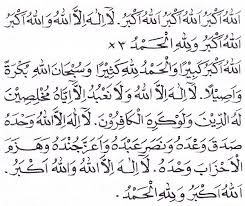 اَللّٰهُ اَكْبَرُ اَللّٰهُ اَكْبَرُ اَللّٰهُ اَكْبَرُ. لَا اِلٰهَ اِلَّا اللّٰهُ وَاللّٰهُ اَكْبَرُ
اَللّٰهُ اَكْبَرُ وَلِلّٰهِ الْحَمْدُ ×٣
اَللّٰهُ اَكْبَرُ كَبِيْرًا وَالْحَمْدُ لِلّٰهِ كَثِيْرًا وَسُبْحَانَ اللّٰهِ بُكْرَةً
وَاَصِيْلًا. لَا اِلٰهَ اِلَّا اللّٰهُ وَلَا نَعْبُدُ اِلَّا اِيَّاهُ مُخْلِصِيْنَ
لَهُ الدِّيْنَ وَلَوْ كَرِهَ الْكَافِرُوْنَ. لَا اِلٰهَ اِلَّا اللّٰهُ وَحْدَهُ
صَدَقَ وَعْدَهُ وَنَصَرَ عَبْدَهُ وَاَعَزَّ جُنْدَهُ وَهَزَمَ
الْاَحْزَابَ وَحْدَهُ. لَا اِلٰهَ اِلَّا اللّٰهُ وَاللّٰهُ اَكْبَرُ.
اَللّٰهُ اَكْبَرُ وَلِلّٰهِ الْحَمْدُ.